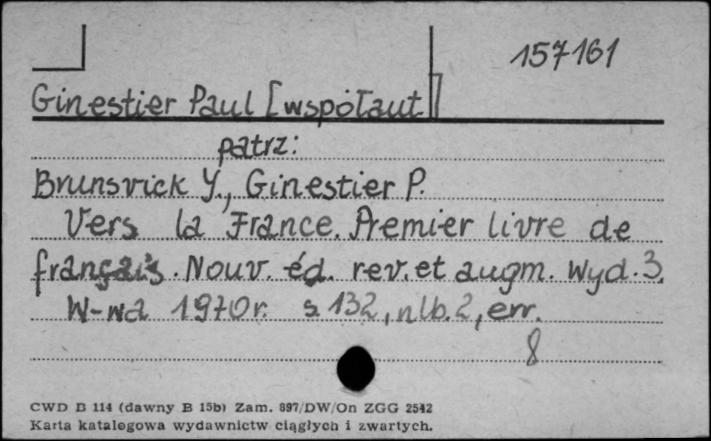 157161
Ginestier Paul [współaut]
patrz:
Brunsvick Y., Ginestier P.
Vers la France. Premier livre de
français. Nouv. éd. rev. et augm. Wyd. 3.
W-wa 1970r. s. 132, nlb. 2, err.
8
CWD B 114 (dawny B 15b) Zam. 897/DW/On ZGG 2542
Karta katalogowa wydawnictw ciągłych i zwartych.